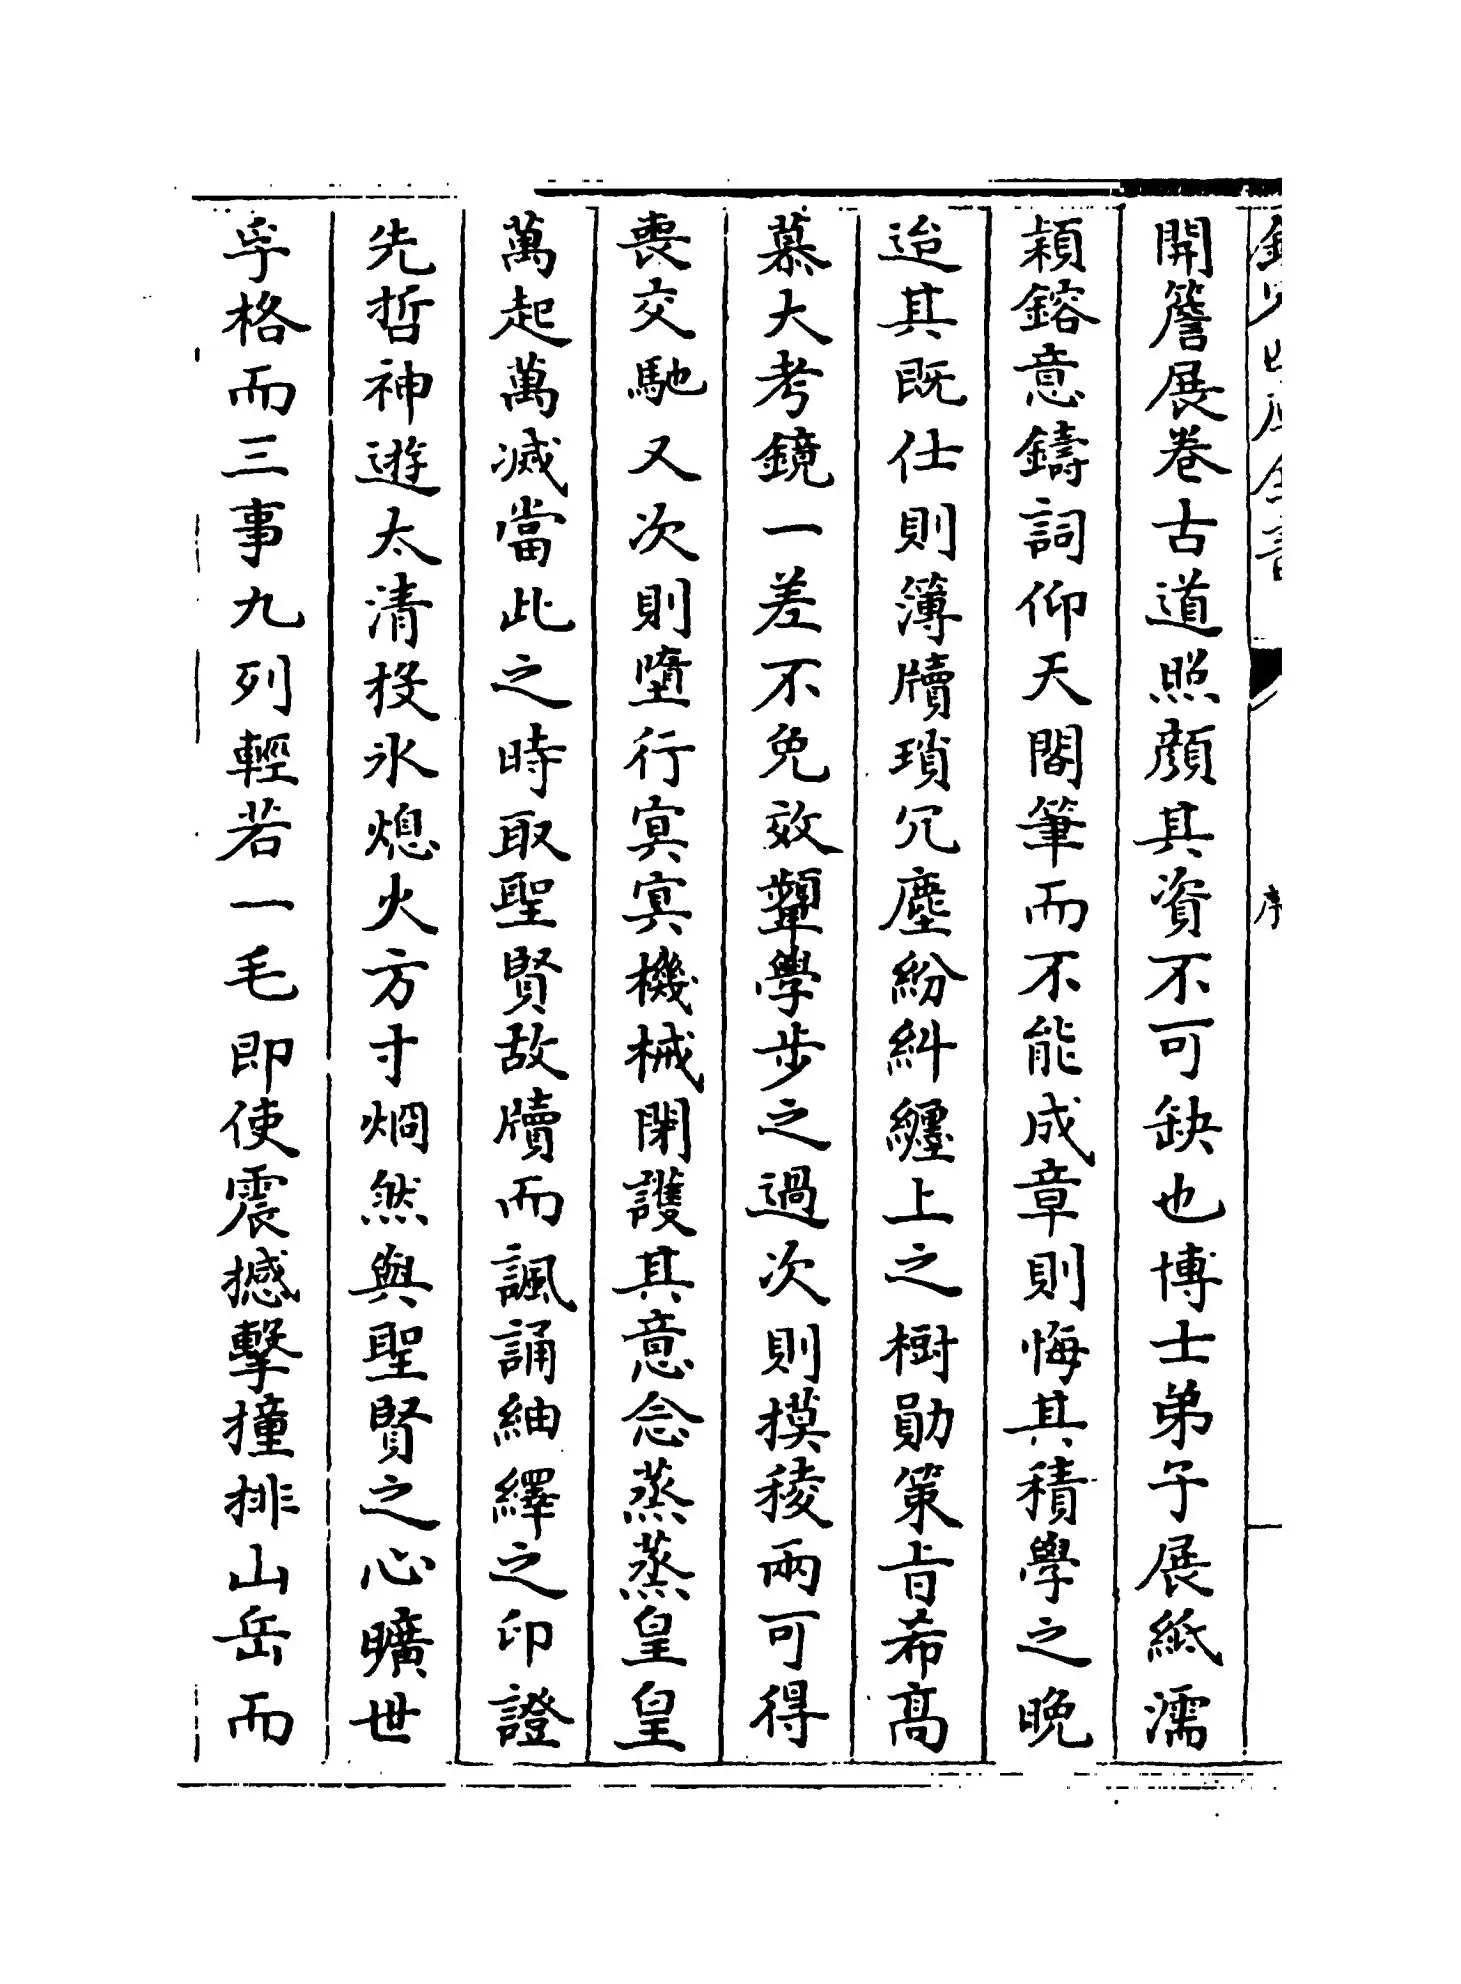 開簷展卷古道照顔其資不可缺也博士弟子展紙濡
穎鎔意鑄詞仰天閣筆而不能成章則悔其積學之晚
迨其既仕則簿牘瑣冗塵紛糾纏上之樹勛策㫖希高
慕大考鏡一差不免效顰學步之過次則摸稜兩可得
喪交馳又次則墮行㝠㝠機械閉護其意念蒸蒸皇皇
萬起萬滅當此之時取聖賢故牘而諷誦紬繹之印證
先哲神遊太清投氷熄火方寸烱然與聖賢之心曠世
孚格而三事九列輕若一毛即使震撼擊撞排山岳而